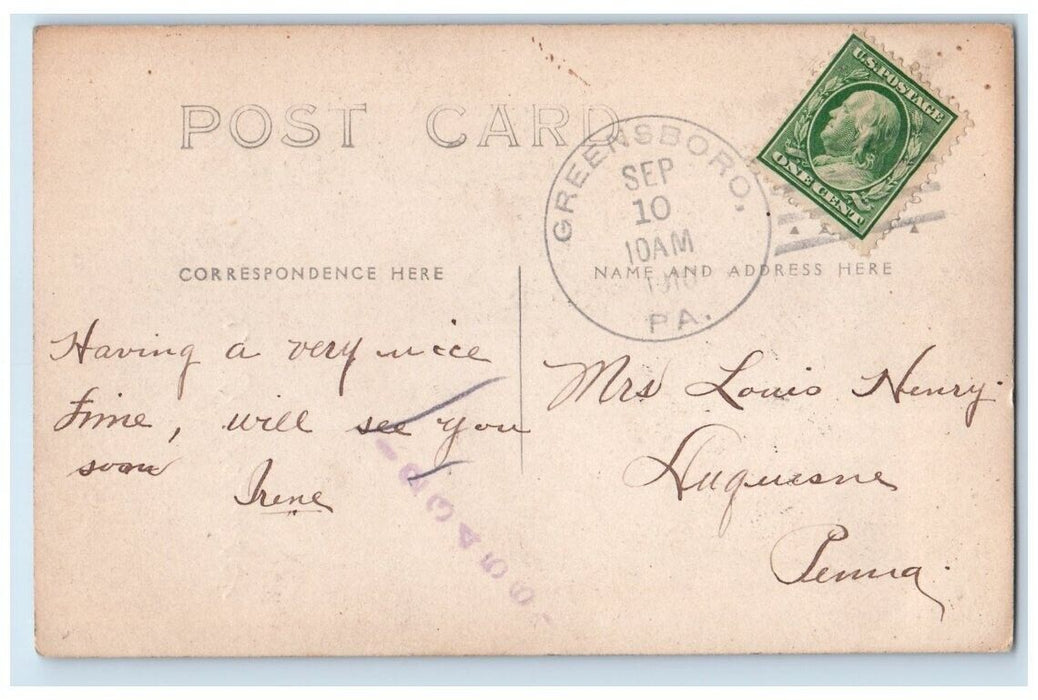 POST CARD
U.S. POSTAGE
ONE CENT
GREENSBORO,
SEP
10
10AM
1910
PA.
CORRESPONDENCE HERE
NAME AND ADDRESS HERE
Having a very nice
time, will see you
soon
Irene
Mrs Louis Henry.
Duquesne
Penna.